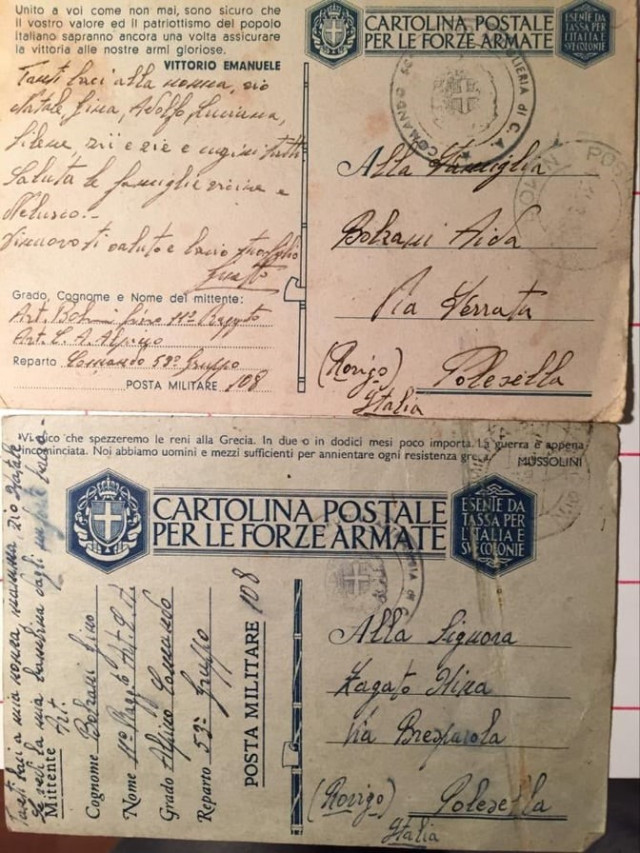 Unito a voi come non mai, sono sicuro che
il vostro valore ed il patriottismo del popolo
italiano sapranno ancora una volta assicurare
la vittoria alle nostre armi gloriose.
VITTORIO EMANUELE
Tanti baci alla nonna, zio
Natale, Gina, Adolfo, Luciana,
zii e zie e cugini tutti
Saluta le famiglie vicine e
Di nuovo ti saluto e bacio
Grado, Cognome e Nome del mittente:
Art. Gino 11º Raggto
Art. C. A. Alpino
Reparto Comando 53º Gruppo
POSTA MILITARE 108
CARTOLINA POSTALE
PER LE FORZE ARMATE
ESENTE DA
TASSA PER
L'ITALIA E
SVE COLONIE
COMANDO
di C. A.
Alla Famiglia
Bolzani Aida
Via Ferrata
(Rovigo) Polesella
Italia
Vi dico che spezzeremo le reni alla Grecia. In due o in dodici mesi poco importa. La guerra è appena
incominciata. Noi abbiamo uomini e mezzi sufficienti per annientare ogni resistenza greca.
MUSSOLINI
CARTOLINA POSTALE
PER LE FORZE ARMATE
ESENTE DA
TASSA PER
L'ITALIA E
SVE COLONIE
Tanti baci a mia nonna, mamma, zio Natale
la mia
Mittente Art.
Cognome Bolzani Gino
Nome 11º Raggto Art.
Grado Alpino Comando
Reparto 53º Gruppo
POSTA MILITARE 108
Alla Signora
Zagato Nina
Via Bresparola
(Rovigo) Polesella
Italia